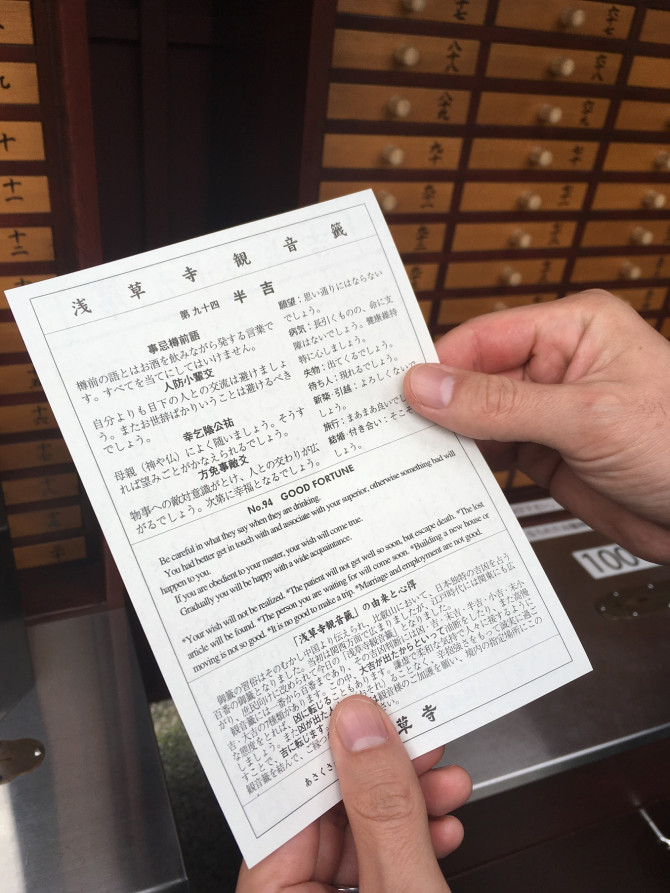 浅草寺観音籤
第九十四 半吉
事忌樽前語
樽前の語とはお酒を飲みながら発する言葉で
す。すべてを当てにしてはいけません。
人防小輩爻
自分よりも目下の人との交流は避けましょ
う。またお世辞ばかりいうことは避けるべき
でしょう。
幸乞陰公祐
母親（神や仏）によく随いましょう。そうす
れば望みごとがかなえられるでしょう。
方免事敵爻
物事への敵対意識がとけ、人との交わりが広
がるでしょう。次第に幸福となるでしょう。
願望：思い通りにはならない
でしょう。
病気：長引くものの、命に支
障はないでしょう。健康維持
特に心しましょう。
失物：出てくるでしょう。
待ち人：現れるでしょう。
新築・引越：よろしくないで
しょう。
旅行：まあまあ良いでし
ょう。
結婚・付き合い：そこそ
しょう。
No.94 GOOD FORTUNE
Be careful in what they say when they are drinking.
You had better get in touch with and associate with your superior, otherwise something bad will
happen to you.
If you are obedient to your master, your wish will come true.
Gradually you will be happy with a wide acquaintance.
*Your wish will not be realized. *The patient will not get well so soon, but escape death. *The lost
article will be found. *The person you are waiting for will come soon. *Building a new house or
moving is not so good. *It is no good to make a trip. *Marriage and employment are not good.
「浅草寺観音籤」の由来と心得
御籤の習俗はそのむかし中国より伝えられ、比叡山において、日本独特の吉凶を占う
百番の御籤となりました。当初は関西方面で広まりましたが、江戸時代には関東にも広
がり、庶民向けに改められて今日の「浅草寺観音籤」となりました。
観音籤には一番から百番まであり、その吉凶判断には凶・吉・末吉・半吉・小吉・末小
吉・大吉の7種類があります。この中、大吉が出たからといって油断をしたり、また高慢
な態度をとれば、凶に転じることもあります。謙虚で柔和な気持で人々に接するようにし
ましょう。また凶が出た
すことで、吉に転じます
観音籤を結んで、ご縁つ
草寺
あさくさ
八十八
八十九
九十
十
十一
十二
七十
100